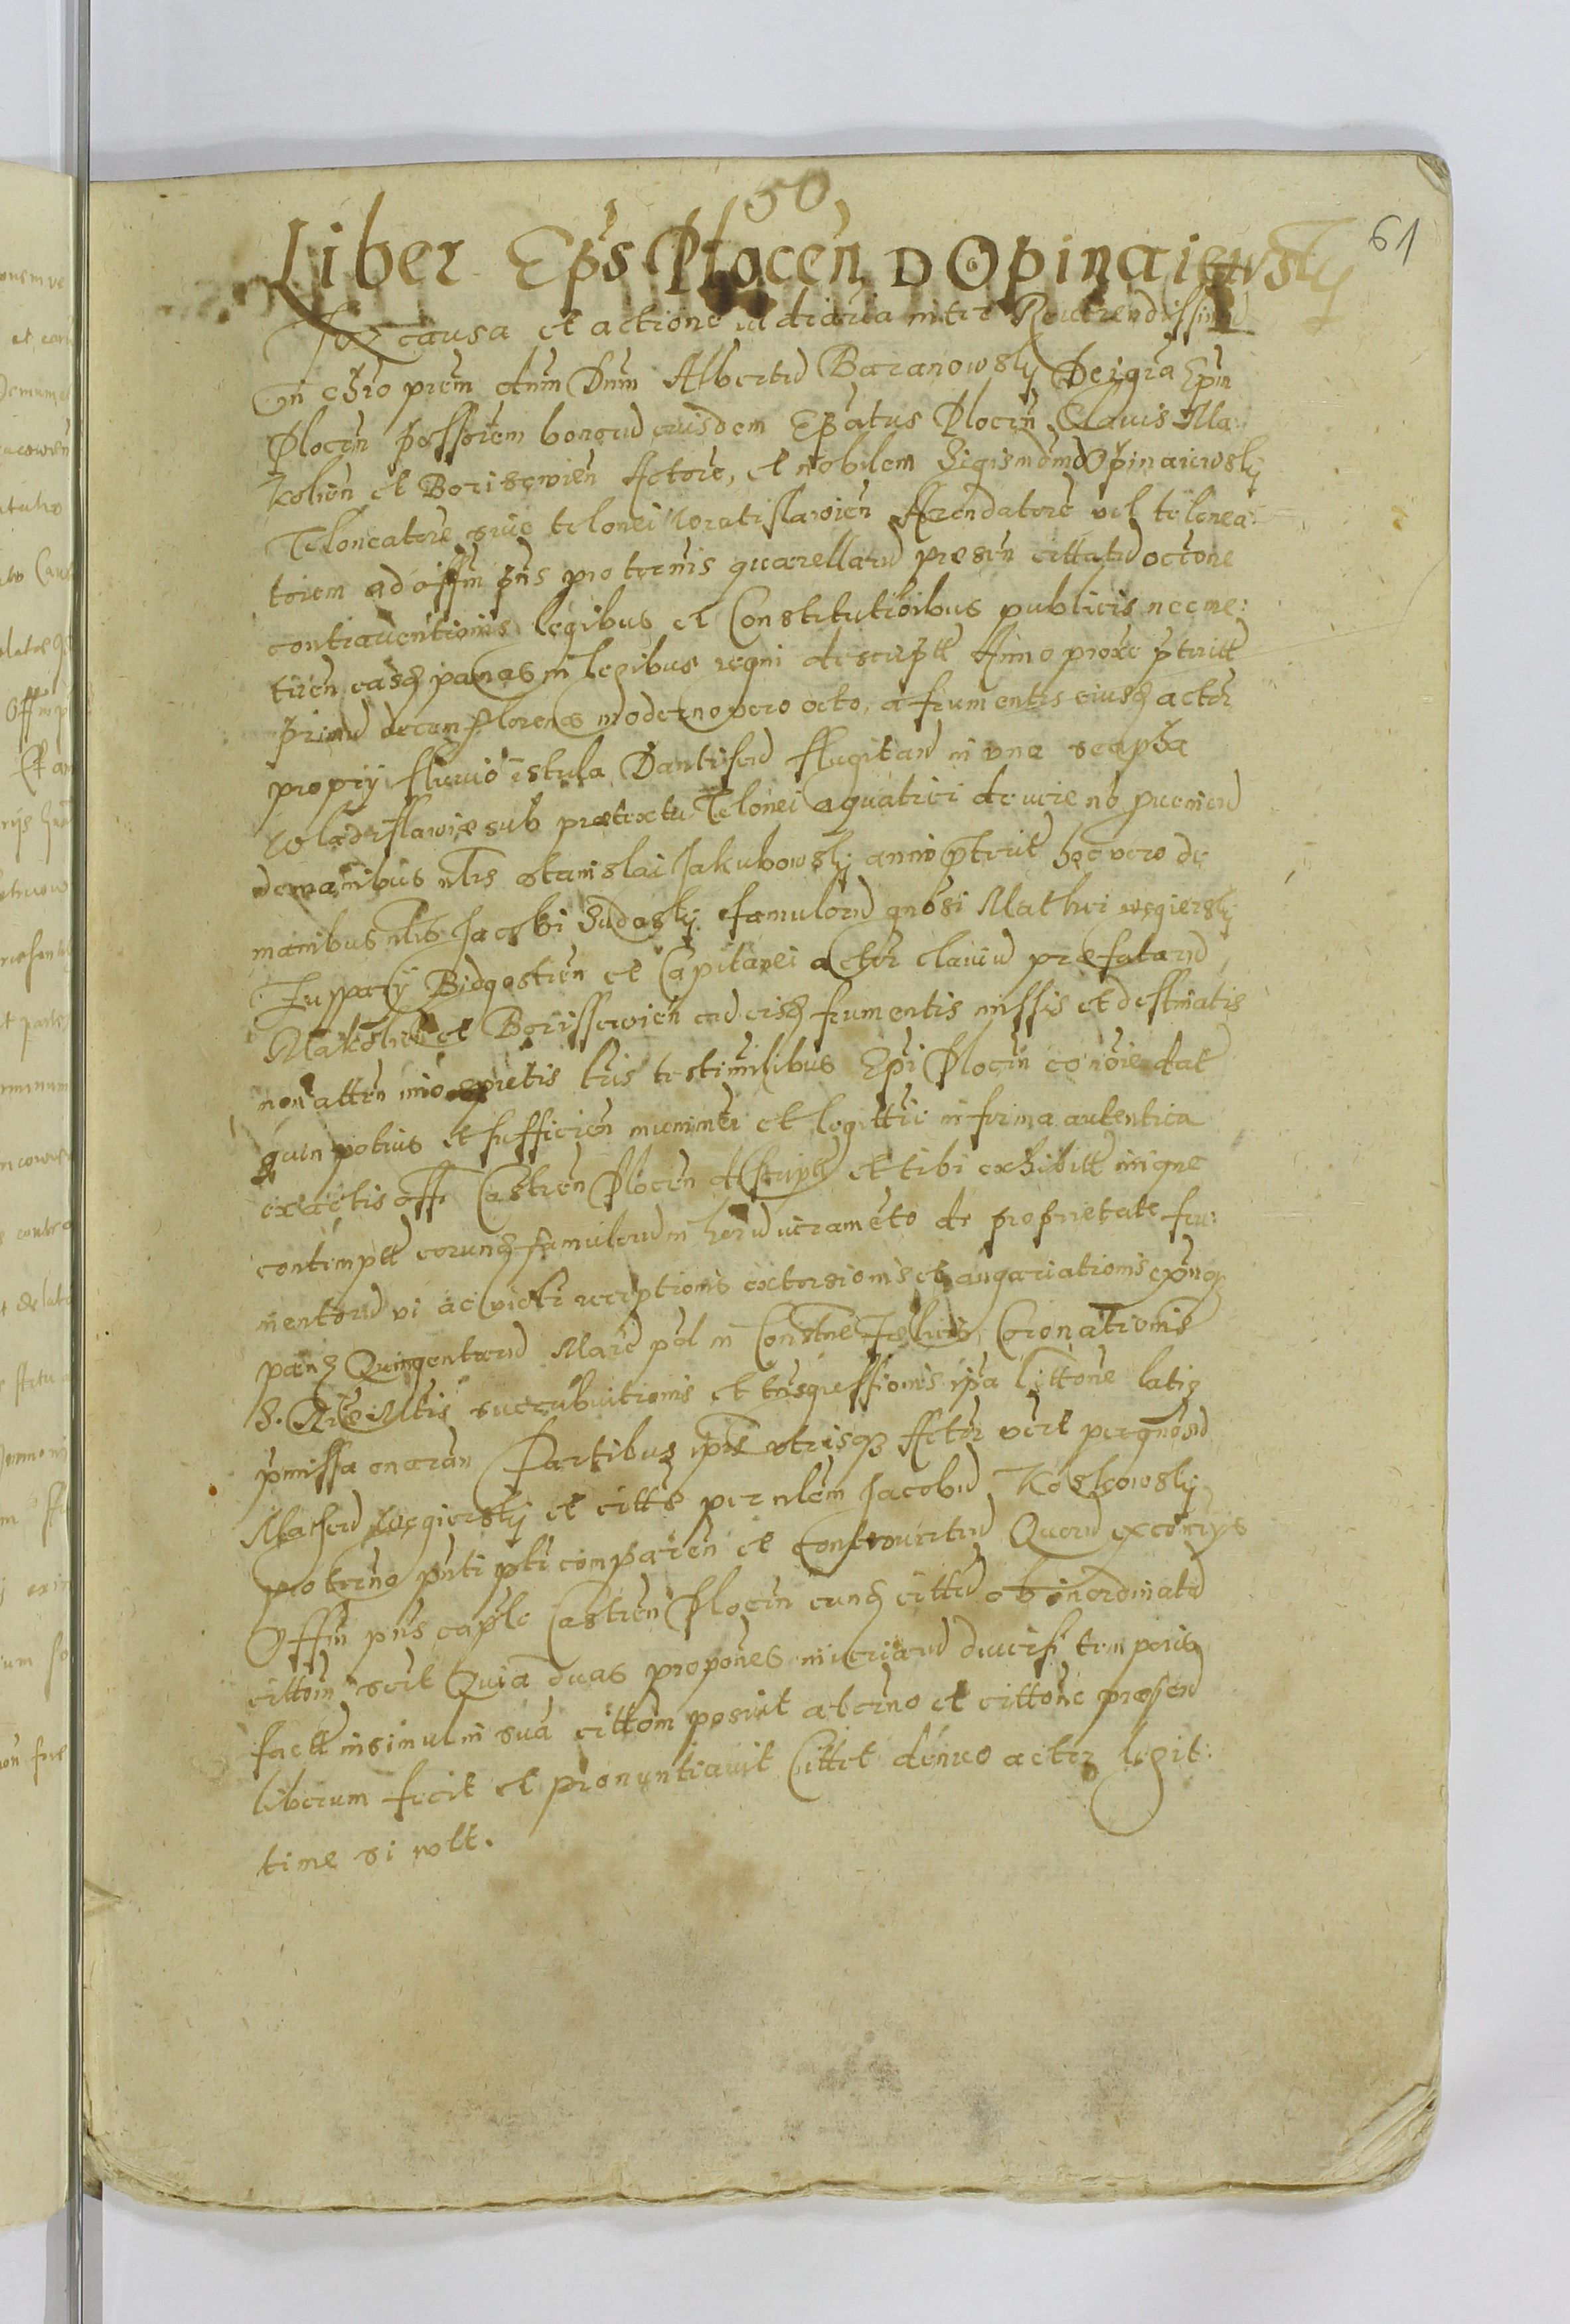 50
61
Liber Eps Plocen D Opinaiewsky
In causa et actione iudiciaria inter Reverendissimu
in chro prem dnm Dnm Albertu Baranowsky Dei gra Epm
Plocen possessorem bonoru eiusdem Epatus Plocen Clavis Ma:
kolien et Boriscwien Actore, et nobilem Sigismdmd Opinaiewsky
Teloneatore sive telonei Wratislawien Arendatore vel telonea:
torem ad offm pns pro termis quarellaru presen cittatu octone
contraventionis legibus et Constitutioibus publicis nec me:
tuen easq paenas in legibus regni descriptt Anno proxe pteritt
primu decem florenos moderno vero octo, a frumentis eiusq actor
proprys fluvio istula Dantiscu flugitan in una scapha
Wladislawie sub praetextu Telonei aquatici de iure no proveniend
de manibus nlis Stanislai Jakubowsky anno pterit hoc vero de
manibus nlis Jacobi Sudosky famuloru gnosi Mathei Wegiersky
Juppary Bidgostien et Capitanei actor claviu praefataru
Makolien et Borissewien cu eisq frumentis missis et destinatis
non atten imo spretis lris testimlibus Epi Plocen co noie dat
quin potius et sufficien munimen et legittie in forma autentica
ex actis offi Castren Plocen descriptt et tibi exhibitt inique
contemptt eorunq famuloru in horu iuramento de proprietate fru:
mentoru vi ac violen receptionis extorsionis et angariationis
paenq Quingentaru Marc pol in Constne Felicis Coronationis
S. Rte Mtis succubuitionis et trnsgressionis ipa cittone latiq
pmissa onaran Partibus ipis utrisq Actor vere per gnosu
Matheu Wegiersky et citts per nlem Jacobu Koskowsky
pro terno pnti pti comparen et controverten Quoru ex conys
Offm pns caple Castren Plocen eunq cittu ob inordinatu
cittom scit Quia duas propones iniuriaru diversi temporis
factt insimul in sua cittom posuit a terno et cittone praesen
liberum fecit et pronuntiavit Cittet denuo actor legit:
time si vult.